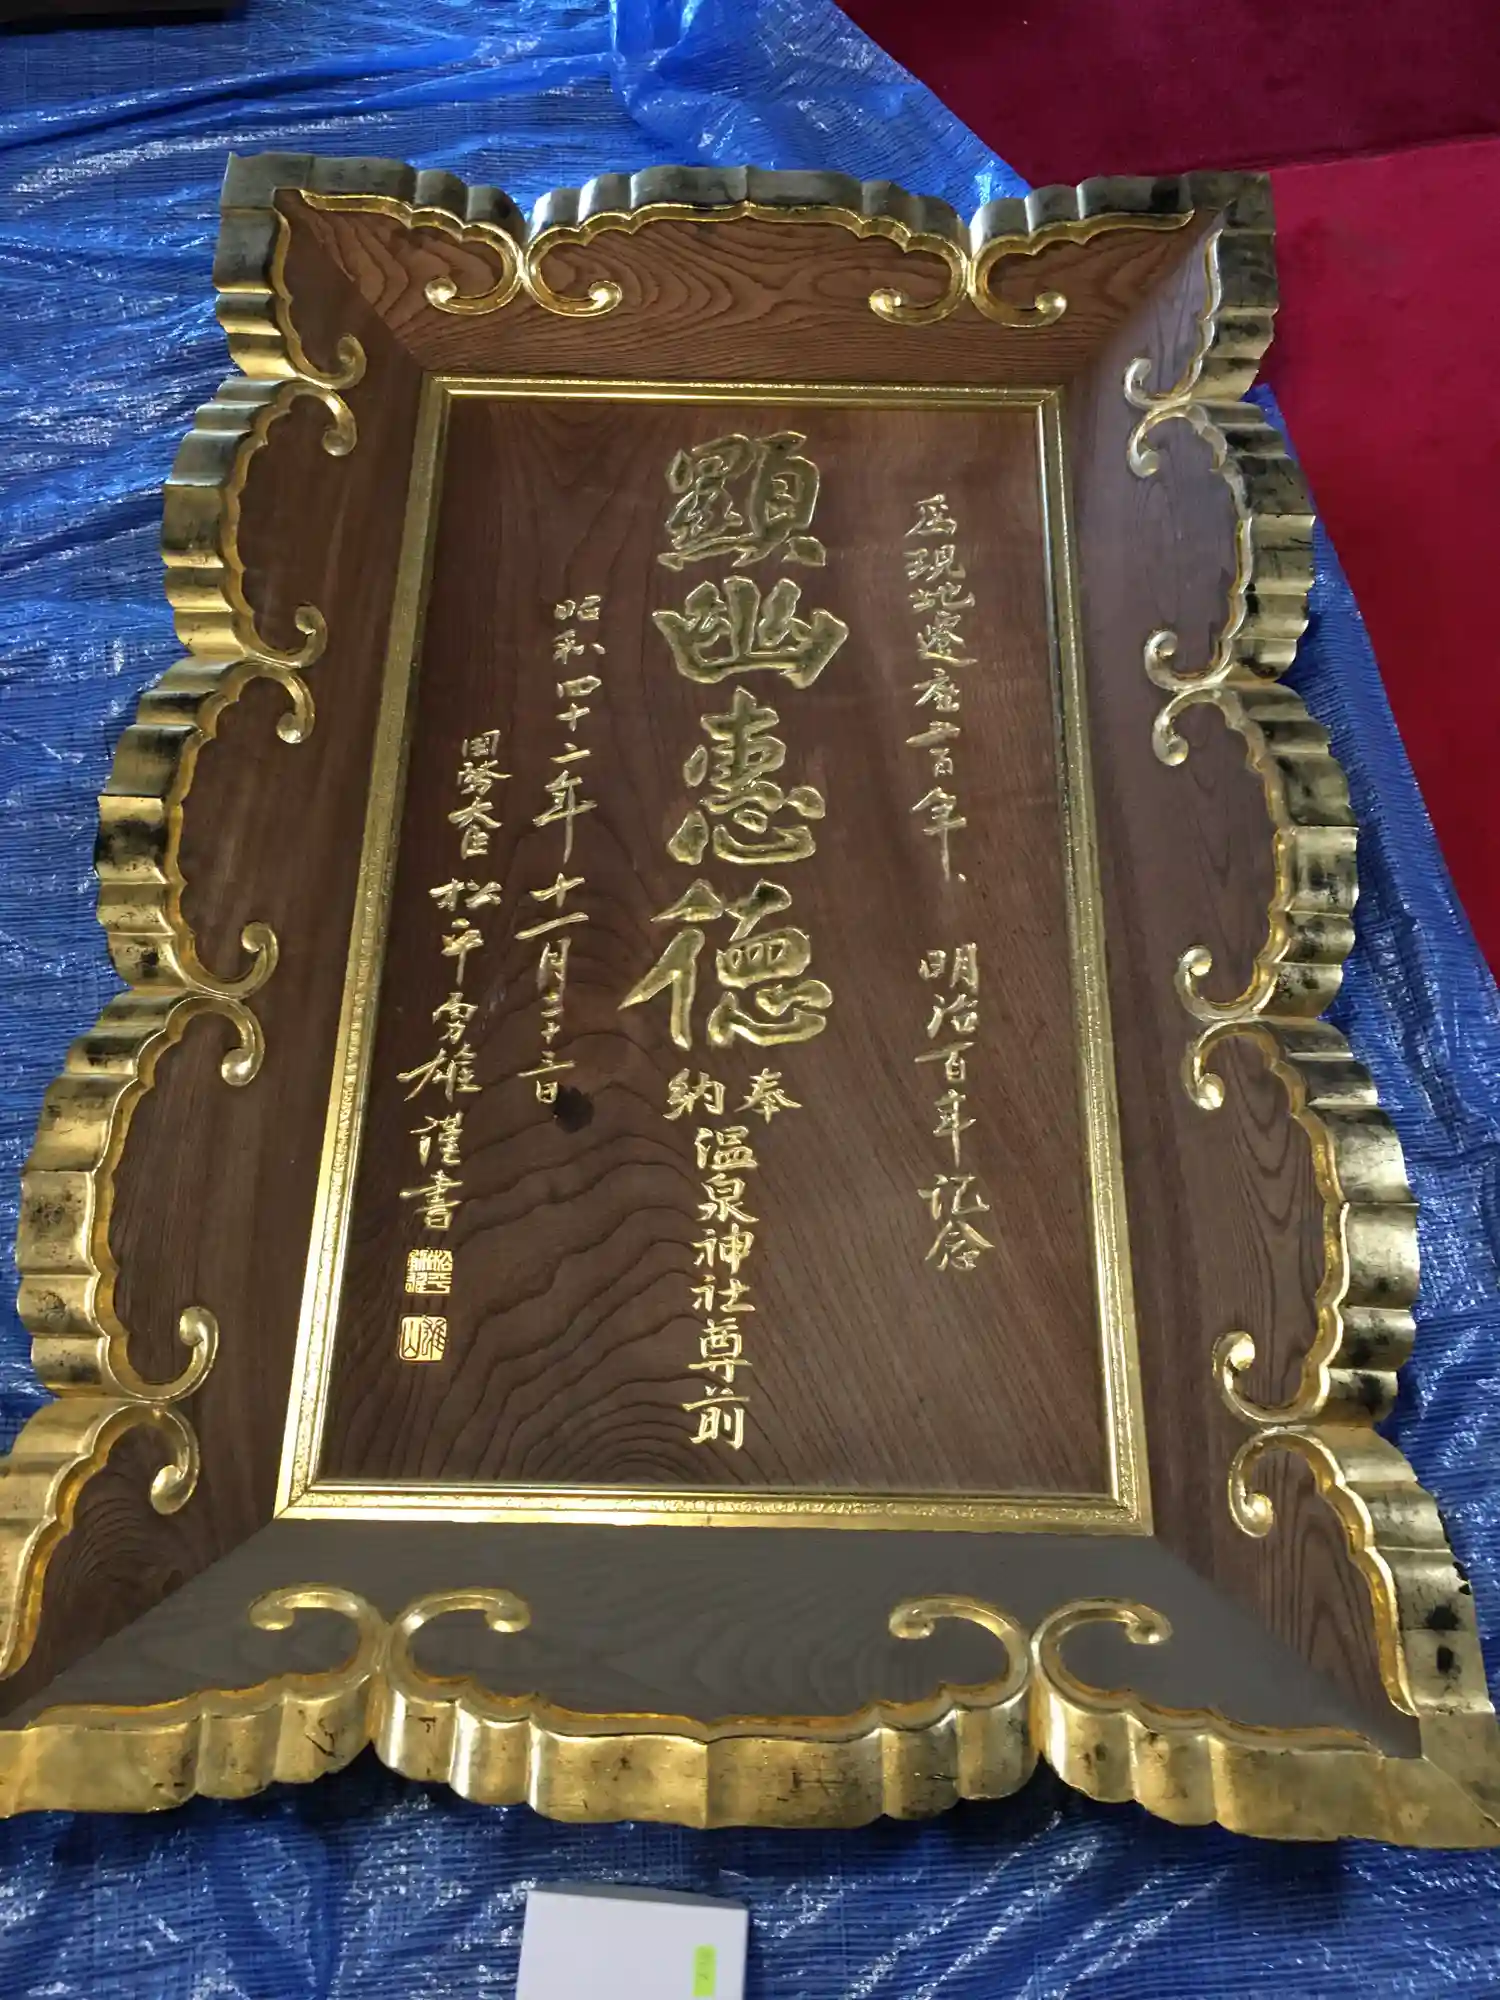 為現地遷座百年、明治百年記念
顯幽恵徳
奉納
温泉神社尊前
昭和四十二年十一月二十三日
国務大臣 松平勇雄 謹書